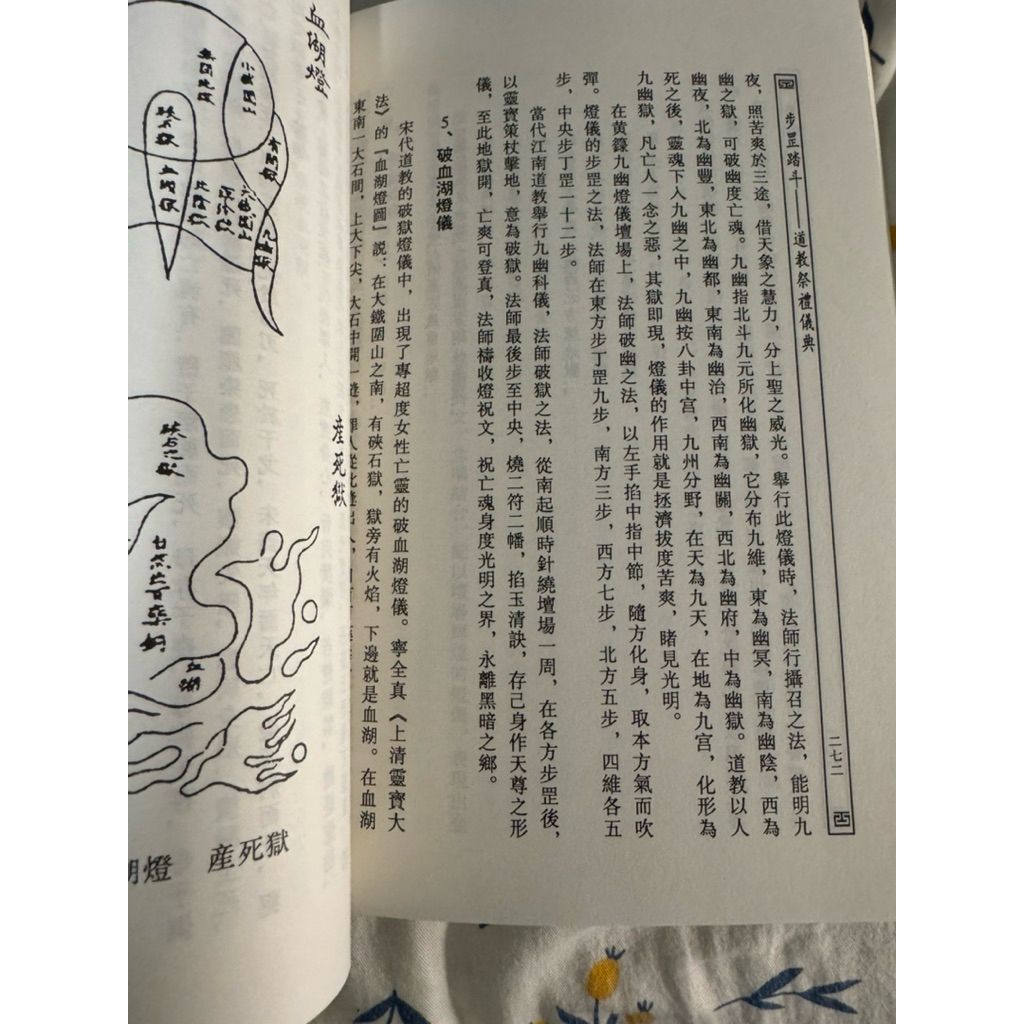 步罡踏斗——道教祭禮儀典
二七二
夜，照苦爽於三途，借天象之慧力，分上聖之威光。舉行此燈儀時，法師行攝召之法，能明九
幽之獄，可破幽度亡魂。九幽指北斗九元所化幽獄，它分布九維，東為幽冥，南為幽陰，西為
幽夜，北為幽豐，東北為幽都，東南為幽治，西南為幽關，西北為幽府，中為幽獄。道教以人
死之後，靈魂下人九幽之中，九幽按八卦中宮，九州分野，在天為九天，在地為九宮，化形為
九幽獄，凡亡人一念之惡，其獄即現，燈儀的作用就是拯濟拔度苦爽，睹見光明。
在黄籙九幽燈儀壇場上，法師破幽之法，以左手掐中指中節，隨方化身，取本方氣而吹
彈。燈儀的步罡之法，法師在東方步丁罡九步，南方三步，西方七步，北方五步，四維各五
步，中央步丁罡一十二步。
當代江南道教舉行九幽科儀，法師破獄之法，從南起順時針繞壇場一周，在各方步罡後，
以靈寶策杖擊地，意為破獄。法師最後步至中央，燒二符二幡，掐玉清訣，存己身作天尊之形
儀，至此地獄開，亡爽可登真，法師禱收燈祝文，祝亡魂身度光明之界，永離黑暗之鄉。
5、破血湖燈儀
宋代道教的破獄燈儀中，出現了專超度女性亡靈的破血湖燈儀。寧全真《上清靈寶大
法》的『血湖燈圖』説：在大鐵圍山之南，有硤石獄，獄旁有火焰，下邊就是血湖。在血湖
東南一大石間，上大下尖，大石中開一
血湖燈
産死獄
硤石獄
血湖
湖燈　産死獄